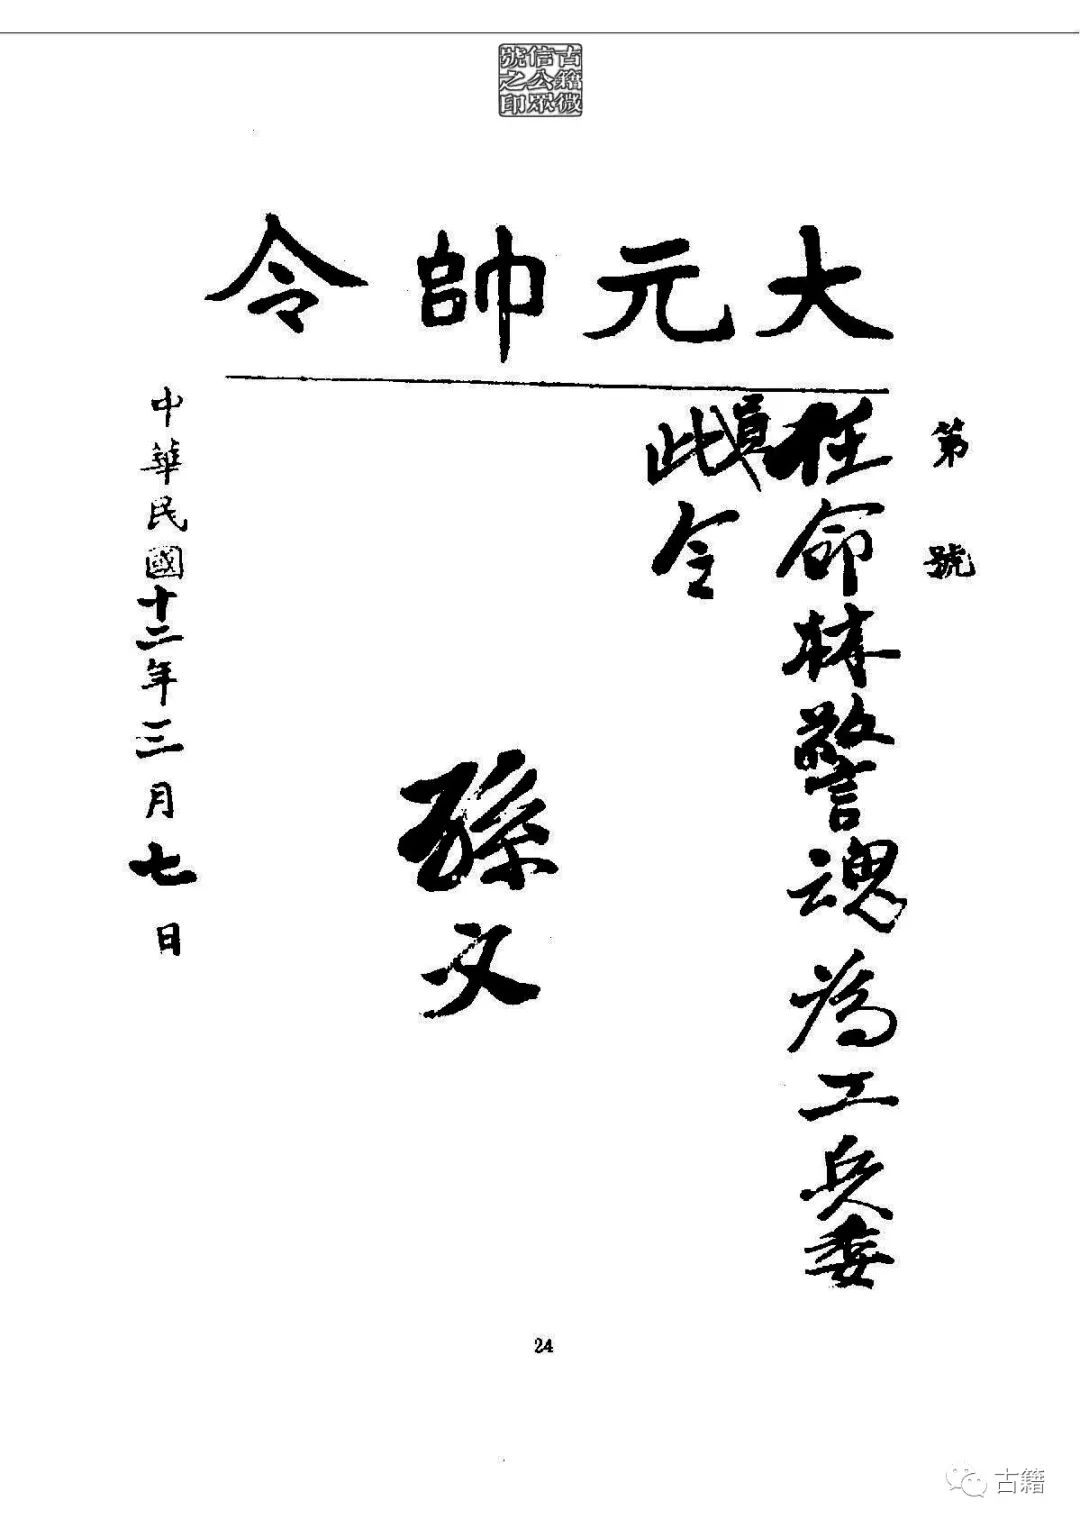 古籍微
信公眾
號之印
大元帥令
第 號
任命林警魂為工兵委
員
此令
孫文
中華民國十二年三月七日
24
古籍